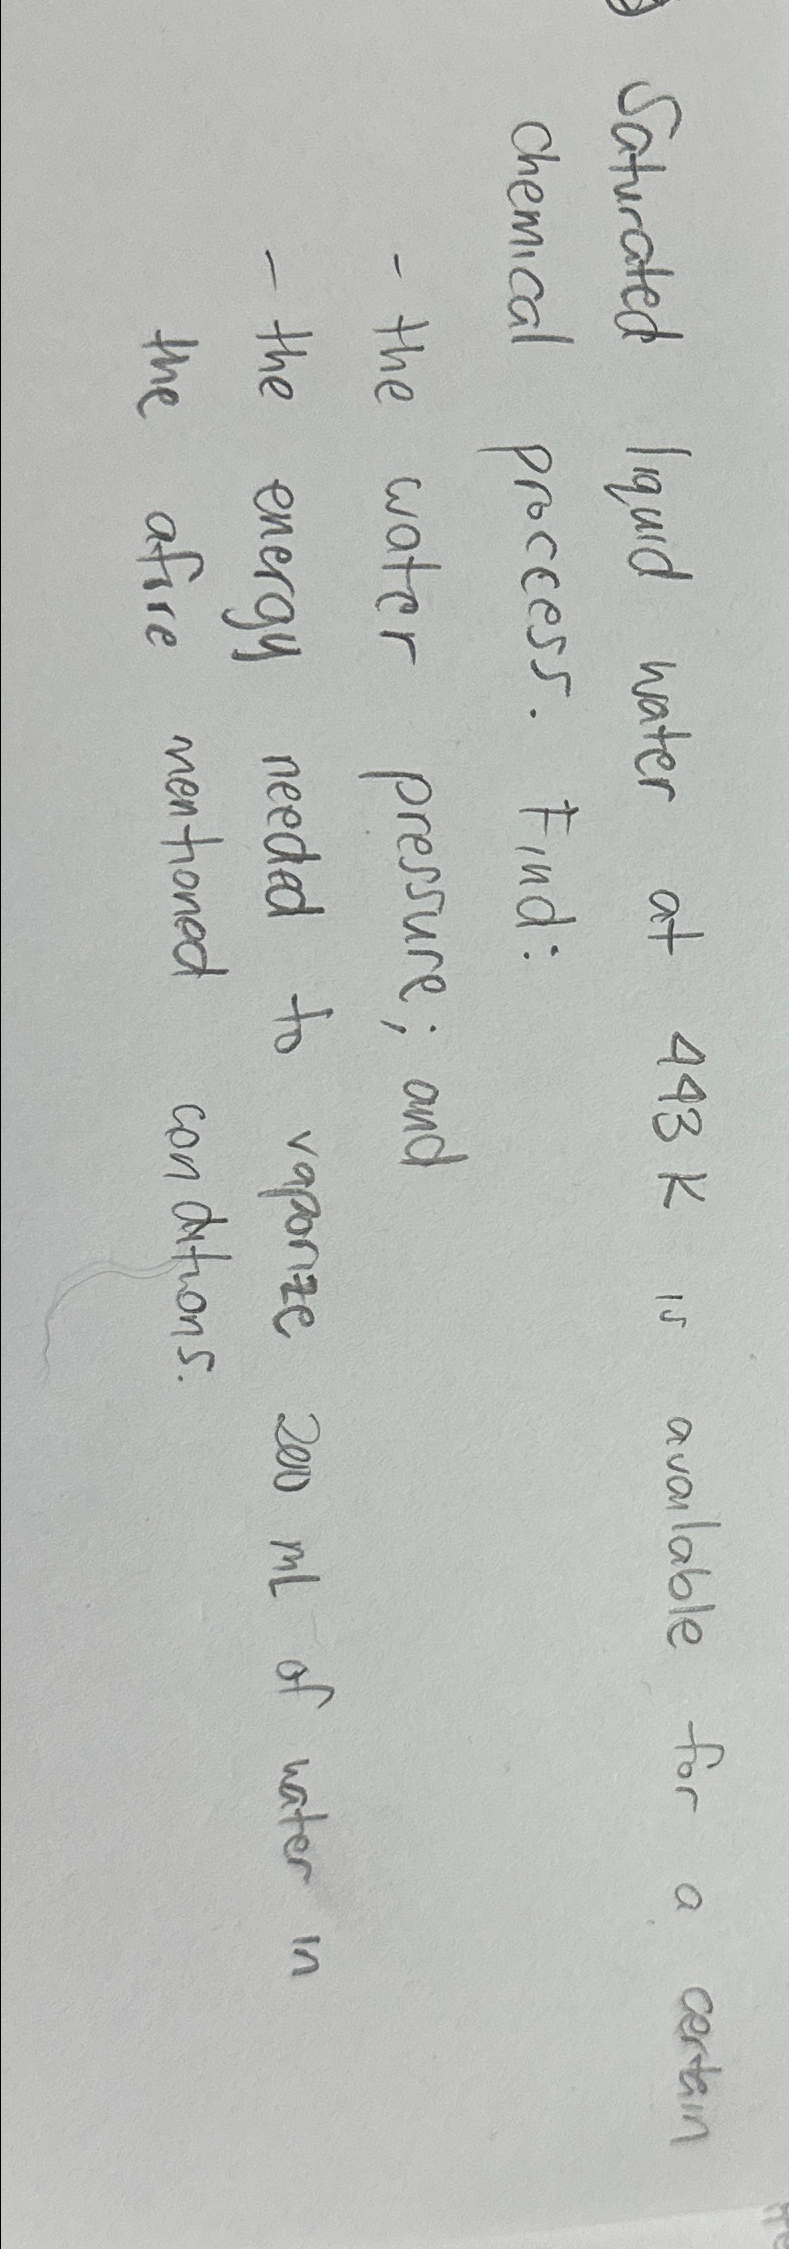 Saturated liquid water at 443 K is available for a certain
chemical process. Find:
- the water pressure; and
- the energy needed to vaporize 200 mL of water in
the afore mentioned conditions.